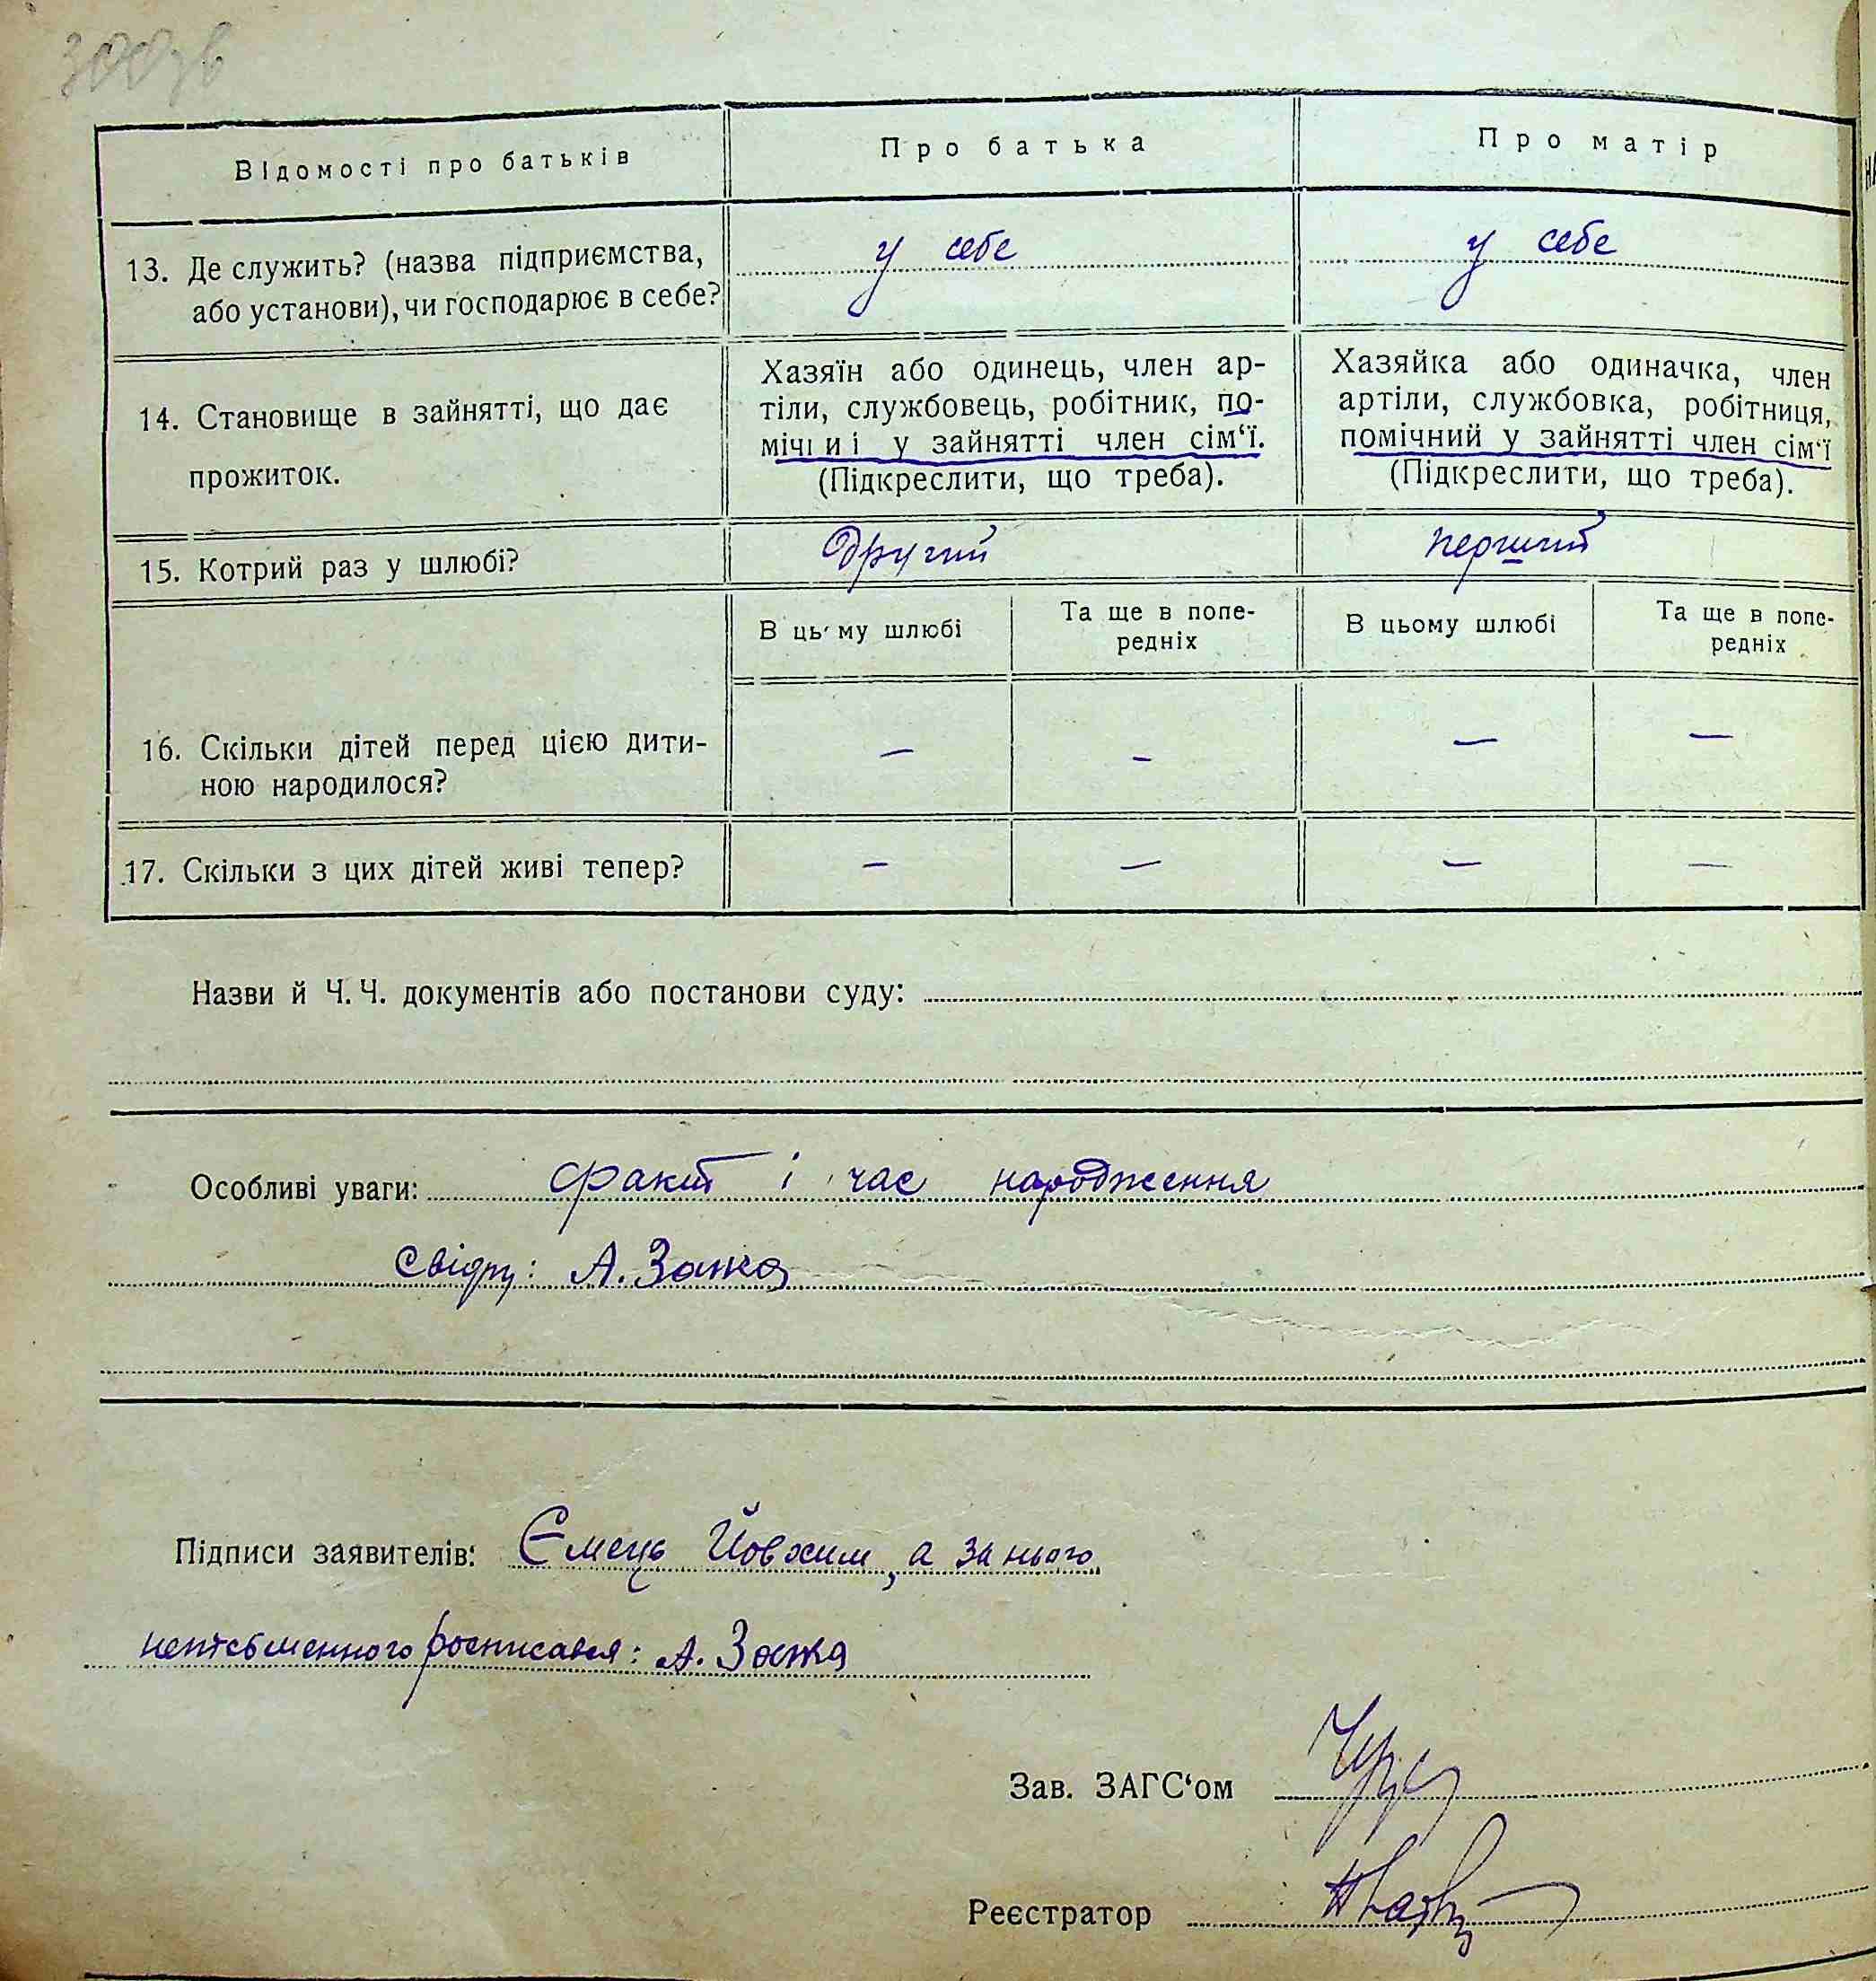 300зв
Відомості про батьків
Про батька
Про матір
13. Де служить? (назва підприємства,
або установи), чи господарює в себе?
у себе
у себе
14. Становище в зайнятті, що дає
прожиток.
Хазяїн або одинець, член ар-
тіли, службовець, робітник, по-
мічниі у зайнятті член сім‘ї.
(Підкреслити, що треба).
Хазяйка або одиначка, член
артіли, службовка, робітниця,
помічний у зайнятті член сім‘ї
(Підкреслити, що треба).
15. Котрий раз у шлюбі?
другий
перший
В цьму шлюбі
Та ще в попе-
редніх
В цьому шлюбі
Та ще в попе-
редніх
16. Скільки дітей перед цією дити-
ною народилося?
— — — —
17. Скільки з цих дітей живі тепер?
— — — —
Назви й Ч. Ч. документів або постанови суду:
Особливі уваги: факт і час народження
свідчу: А. Заїка
Підписи заявителів: Ємець Йовхим, а за нього
неписьменного росписався: А. Заїка
Зав. ЗАГС‘ом
Реєстратор